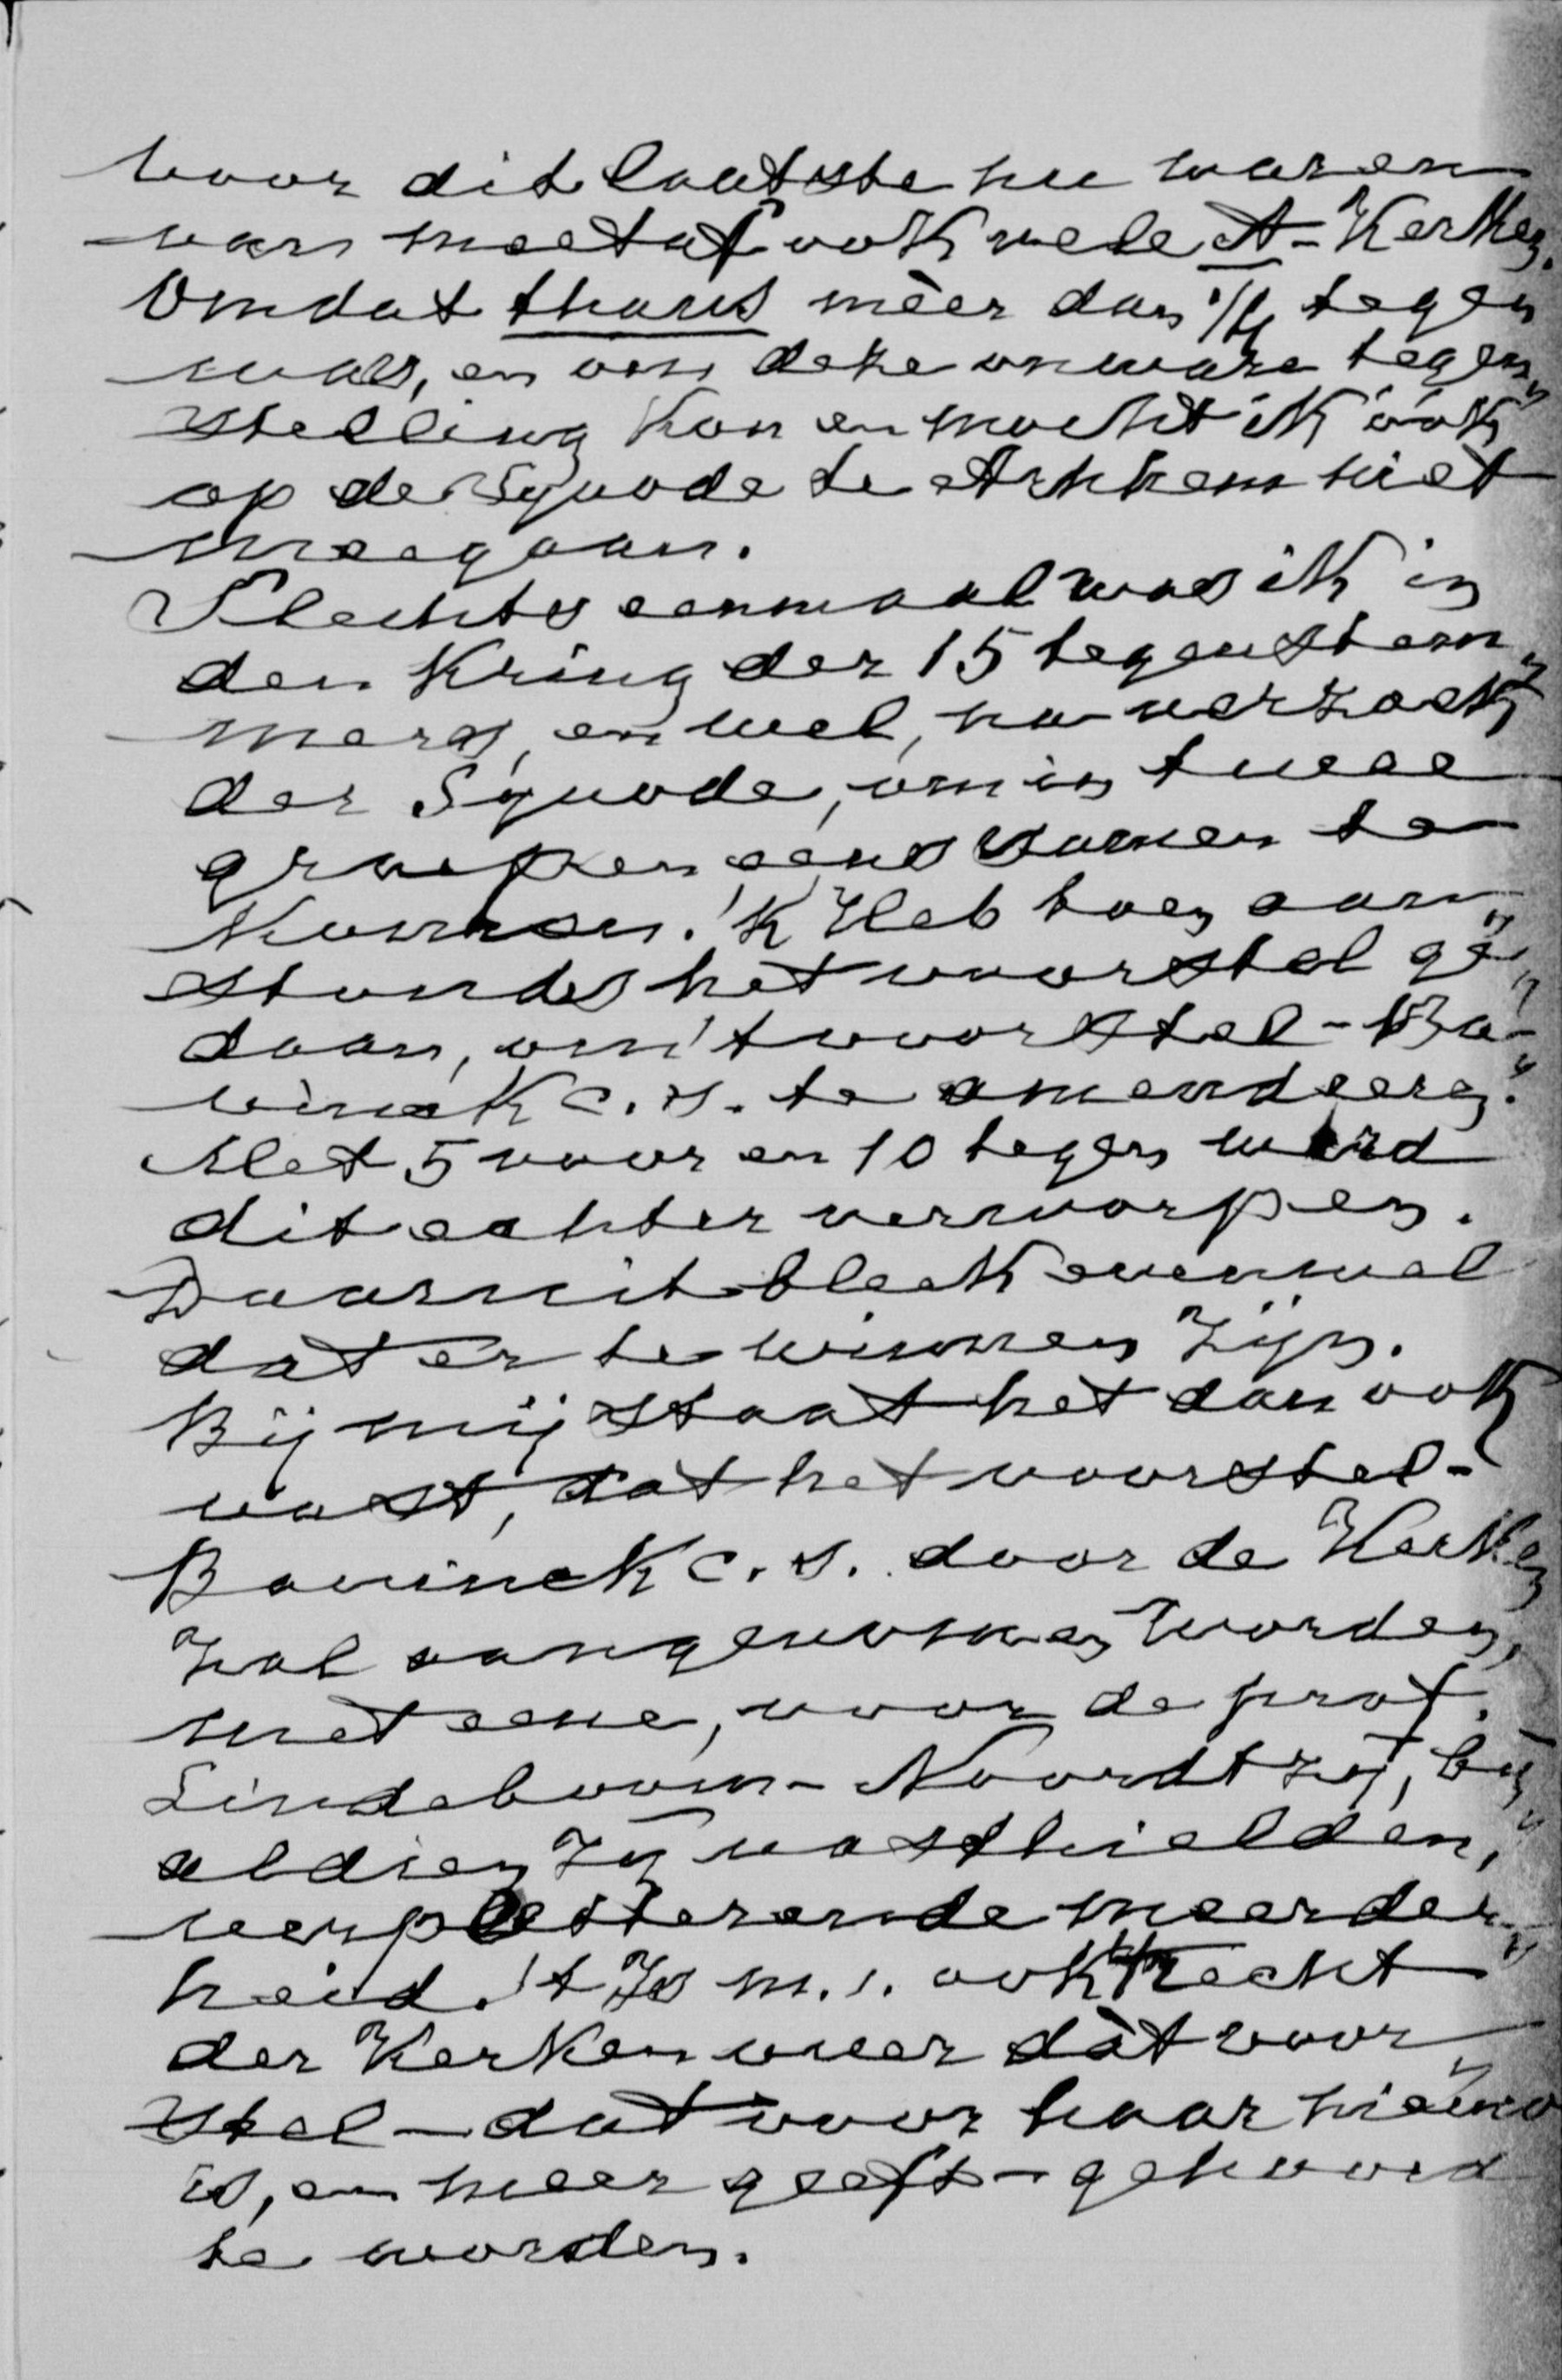 Voor dit laatste nu waren
van meetaf ook vele A-Kerken.
Omdat thans mèer dan 1/4 tegen
was, en om deze onware tegen„
stelling kon en mocht ik óók
op de Synode te Arnhem niet
meegaan.
Slechts eenmaal was ik in
den Kring der 15 tegenstem„
mers, en wel, na verzoek
der Synode, om in twee
groepen eens samen te
komen. 'k Heb toen aan„
stonds het voorstel ge„
daan, om 't voorstel-Ba„
vinck c.s. te amendeeren.
Met 5 voor en 10 tegen werd
dit echter verworpen.
Daaruit bleek evenwel
dat er te winnen zijn.
Bij mij staat het dan ook
vast, dat het voorstel-
Bavinck c.s. door de Kerken
zal aangenomen worden,
met eene, voor de prof.
Lindeboom-Noordtzij, bij„
aldien zij vasthielden,
verpletterende meerder„
heid. 't Is m.i. ook 't recht
der Kerken over dàt voor„
stel - dat voor haar nieuw
is, en meer geeft - gehoord
te worden.